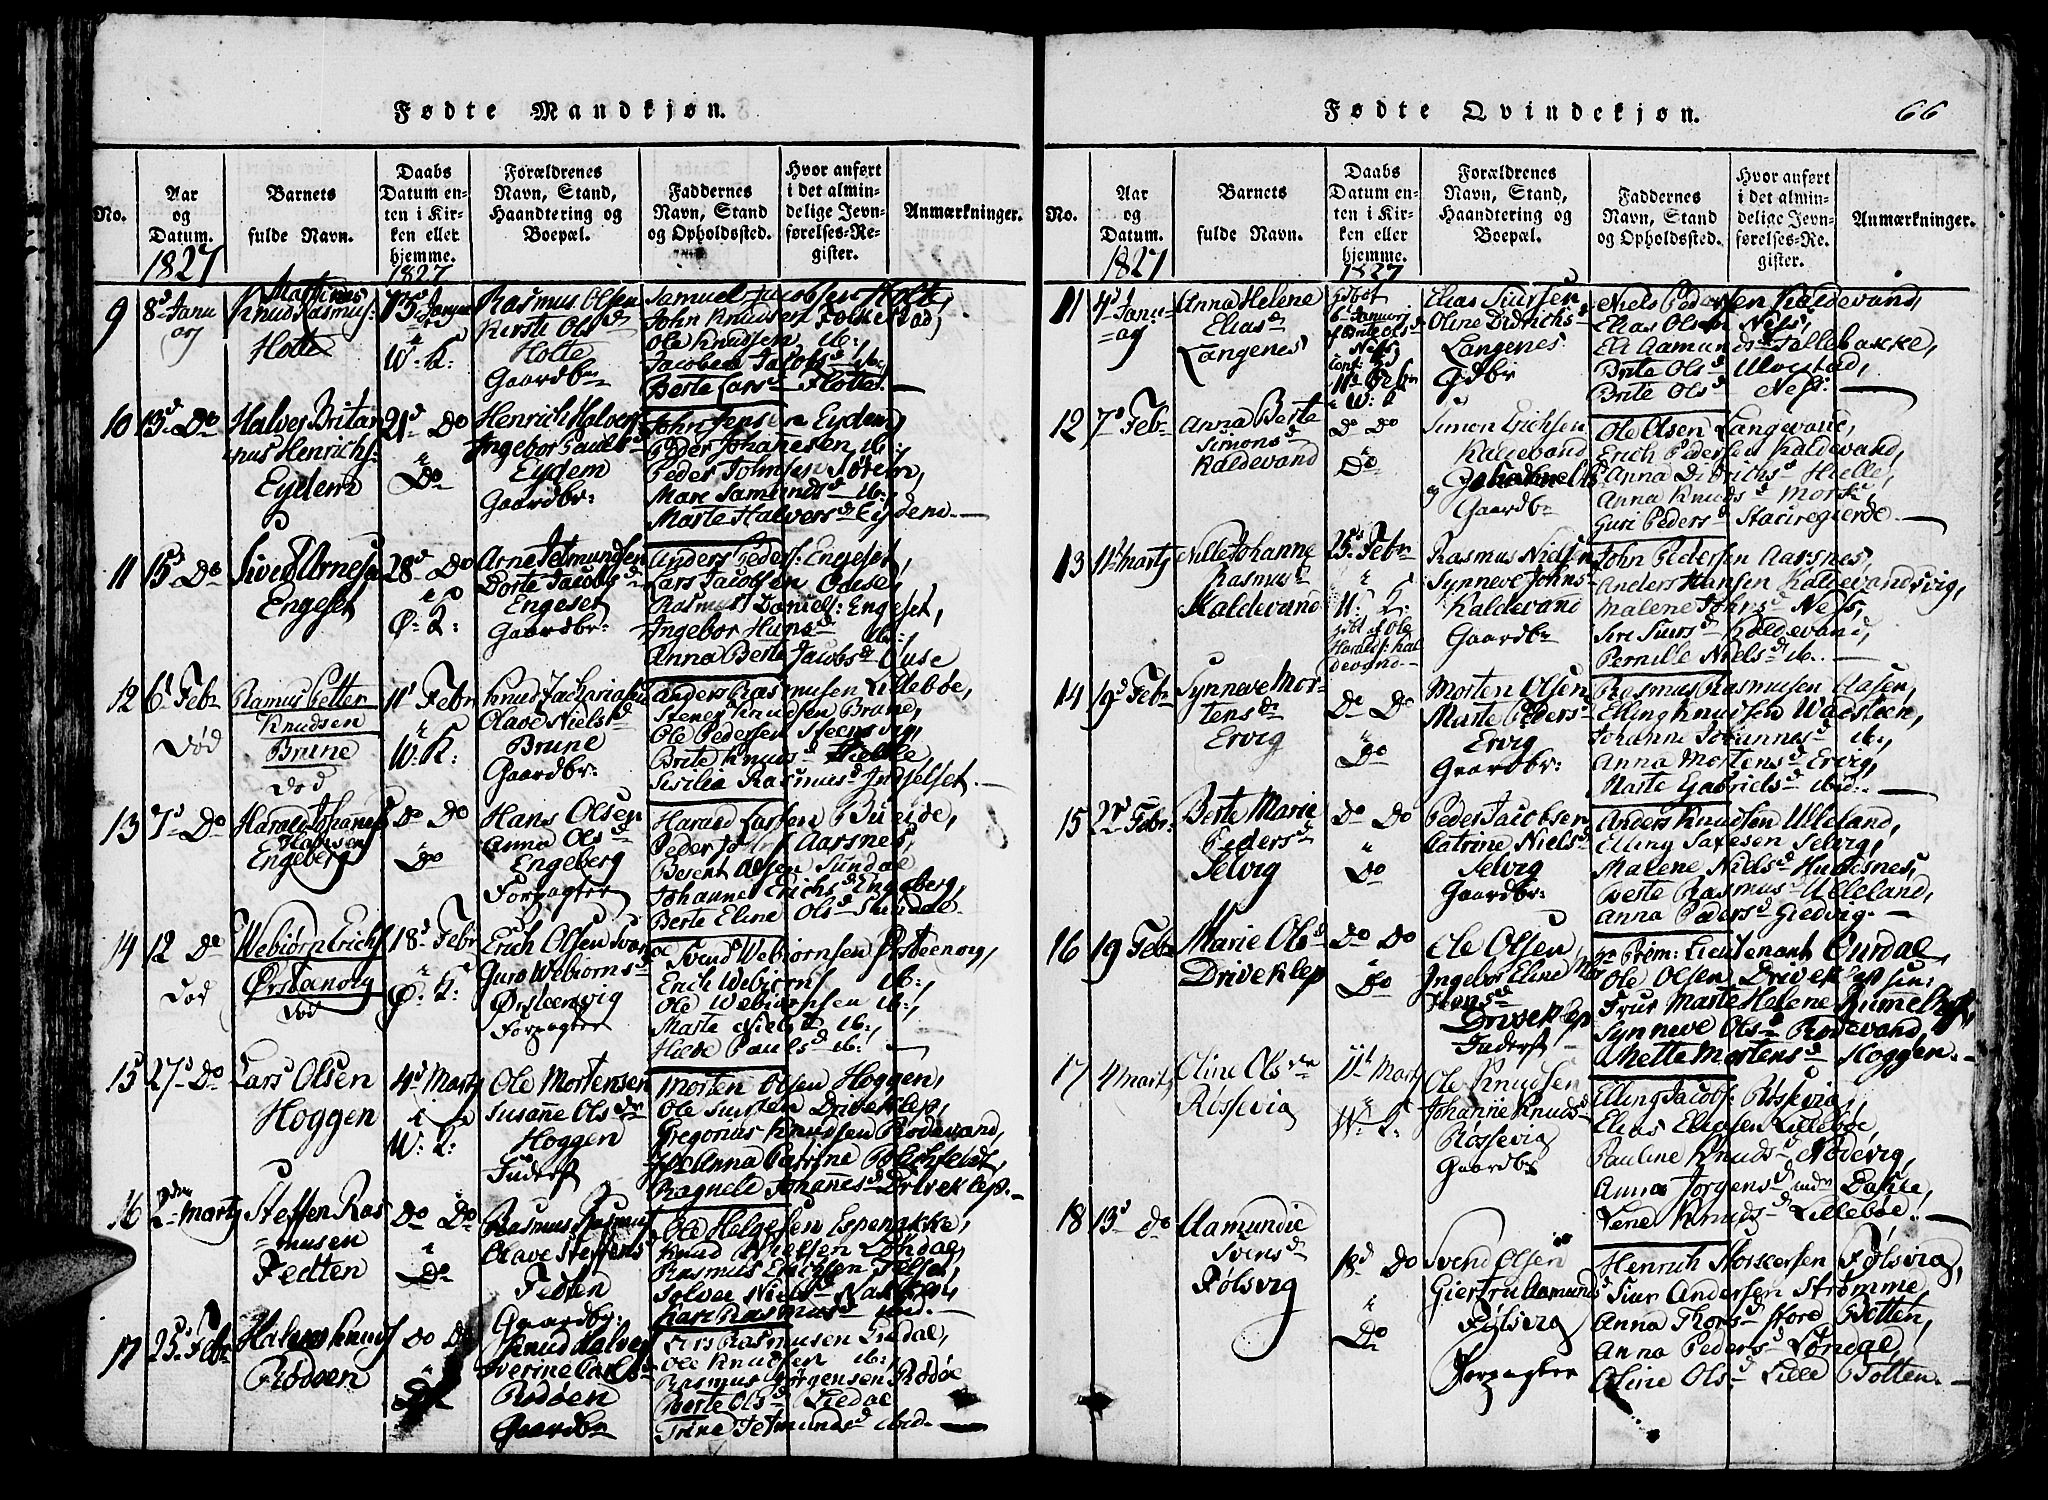 Fødte Mandkjøn.
No.
Aar og Datum.
Barnets fulde Navn.
Daabs Datum enten i Kirken eller hjemme.
Forældrenes Navn, Stand, Haandtering og Boepæl.
Faddernes Navn, Stand og Opholdssted.
Hvor anført i det almindelige Jevnførelses-Register.
Anmærkninger.
1827
1827
9
8d Januarj
Mattines
Knud Rasmus:
Holte
W: K:
Rasmus Olsen
Kirste Olsd
Holte
Gaardbr
Samuel Jacobsen Holte,
John Knudsen Folkestad,
Ole Knudsen, ib:,
Jacobea Jacobsd ibid
Berte Larsd Flotte.
10
13d Do
Halver Britanus Henrichs:
Eydem
21d Do
Do
Henrich Halvers
Ingebor Paulsd
Eydem
Gaardbr:
John Jensen Eydem,
Peder Johanesen ib:,
Peder Johnsen Søreim,
Mare Samundsd ib:,
Marte Halversd Eydem.
11
15d Do
Sivert Arnesen
Engeset
28d Do
Ø: K:
Arne Jetmundsen
Dorte Jacobsd
Engeset
Gaardbr:
Anders Peders: Engeset,
Lars Jacobsen Ouse,
Rasmus Daniels: Engeset,
Ingebor Hansd ib:,
Anna Berte Jacobsd Ouse
12
6t Febr
Død
Ramus Petter
Knudsen
Brune
død
11t Febr
W: K:
Knud Zachariasen
Olave Nielsd
Brune
Gaardbr:
Anders Rasmusen Lillebøe,
Stener Knudsen Brune,
Ole Pedersen Steensvig,
Brite Knudsd Hielle
Sicilia Rasmusd Ingselset.
13
7d Do
Harald Johanes
Hansen
Engeberg
Do Do
Do
Hans Olsen
Anna Olsd
Engeberg
Forpagter
Harald Larsen Bueide,
Peder Aarsnes,
Besent Olsen Sundal
Johanne Erichsd Engeberg,
Berte Eline Olsd Sundal.
14
12 Do
Død
Webiørn Erichs
Ørstanvig
død
18d Febr
Ø: K:
Erich Olsen
Guro Webiornsd
Ørsteenvig
Forpagter
Svend Webiornsen Ørsteenvig,
Erich Webiorns ib:,
Ole Webiornsen ib:,
Marte Nielsd ib:,
Hilde Paulsd ib:
15
27d Do
Lars Olsen
Hoggen
4d Martj
W: K:
Ole Mortensen
Susanne Olsdr
Hoggen
Inderst
Morten Olsen Hoggen,
Ole Siursen Driveklep,
Gregorius Knudsen Rødevand,
Anna Catrine
Ragnele Johanesd Driveklep.
16
2den Martj
Steffen Rasmusen
Fedten
Do Do
Do
Rasmus Rasmus
Olave Steffensd
Fedten
Gaardbr:
Ole Helgesen Espenakke,
Knud Nielsen Løndal,
Rasmus Erichsen Felset,
Solvei Nielsd Nakken,
Kari Rasmusd ibid.
17
25d Febr
Halvor Knuds
Rødøen
Do Do
Do
Knud Halvers
Iverine Carlsd
Rødøen
Gaardbr
Lars Rasmusen Liedal,
Ole Knudsen ib:
Rasmus Jørgensen Rødøe
Berte Olsd Liedal
Trine Jetmundsd ibid.
Fødte Qvindekjøn.
66
No.
Aar og Datum.
Barnets fulde Navn.
Daabs Datum enten i Kirken eller hjemme.
Forældrenes Navn, Stand, Haandtering og Boepæl.
Faddernes Navn, Stand og Opholdssted.
Hvor anført i det almindelige Jevnførelses-Re. gister.
Anmærkninger.
1827
1827
11
4d Januarj
Anna Helene
Eliasd
Langenes
W: K
Elias Siursen
Oline Didrichsd
Langenes
Gdbr
Niels Pedersen Kaldevand,
Elias Olsen Ness,
Eli Aamundsd Follebakke,
Brite Olsd Ulvestad,
Brite Olsd Ness.
12
7d Febr
Anna Berte
Simonsd
Kaldevand
Do Do
Do
Simon Erichsen
Kaldevand
Gaardbr
Ole Olsen Langevand,
Erich Pedersen Kaldevand,
Anna Didrichsd Hielle,
Anna Knudsd Morsk,
Guri Pedersd Stauregierde.
13
11t Martj
Nille Johanne
Rasmusd
Kaldevand
25d Febr
W: K:
Rasmus Nielsen
Synneve Johnsd
Kaldevand
Gaardbr
John Pedersen Aarsnes,
Anders Hansen Kaldevandsvig,
Malene Johnsd Ness,
Siri Siursd Kaldevand,
Pernille Nielsd ib.
14
19d Febr
Synneve Mortensdr
Ervig
Do Do
Do
Morten Olsen
Marte Pedersd
Ervig
Gaardbr:
Rasmus Rasmusen Aasen,
Elling Knudsen Wadsteen,
Johanne Johannesd ib.,
Anna Mortensd Ervig,
Marte Gabrielsd ibid.
15
Febr:
Berte Marie
Pedersd
Selvig
Do Do
Do
Peder Jacobsen
Catrine Nielsd
Selvig
Gaardbr:
Anders Knudsen Ulleland,
Elling Saxesen Selvig,
Malene Nielsd Hundsnes,
Berte Rasmusd Ulleland,
Anna Pedersd Giedvig.
16
19 Febr
Marie Olsd
Driveklep
Do Do
Do
Ole Olsen
Ingebor Eline
Driveklep
Inderst
Hr Prem: Lieutenant Ourdal,
Ole Olsen Driveklep sin:
Frue Marte Helene Rummelhoff,
Synneve Olsd Rødevand,
Anette Mortensd Hoggen.
17
4 Martj
Oline Olsdr
Røssevig
11t Martj
W: K:
Ole Knudsen
Johanne Knudsd
Røssevig
Gaardbr
Elling Jacobs: Røssevig,
Elias Eliasen Lillebøe,
Pauline Knudsd Nødevig,
Anna Jørgensd indr Dahle,
Lene Knudsd Lillebøe.
18
13d Do
Aamundie
Svensd
Følsvig
18d Do
Do
Svend Olsen
Giertru Aamundsd
Følsvig
Forpagter
Henrich Torkersen Følsvig,
Siur Andersen Strømme
Anna Thorsd Store Botten,
Anna Pedersd Løndal,
Oline Olsd Lille Botten.